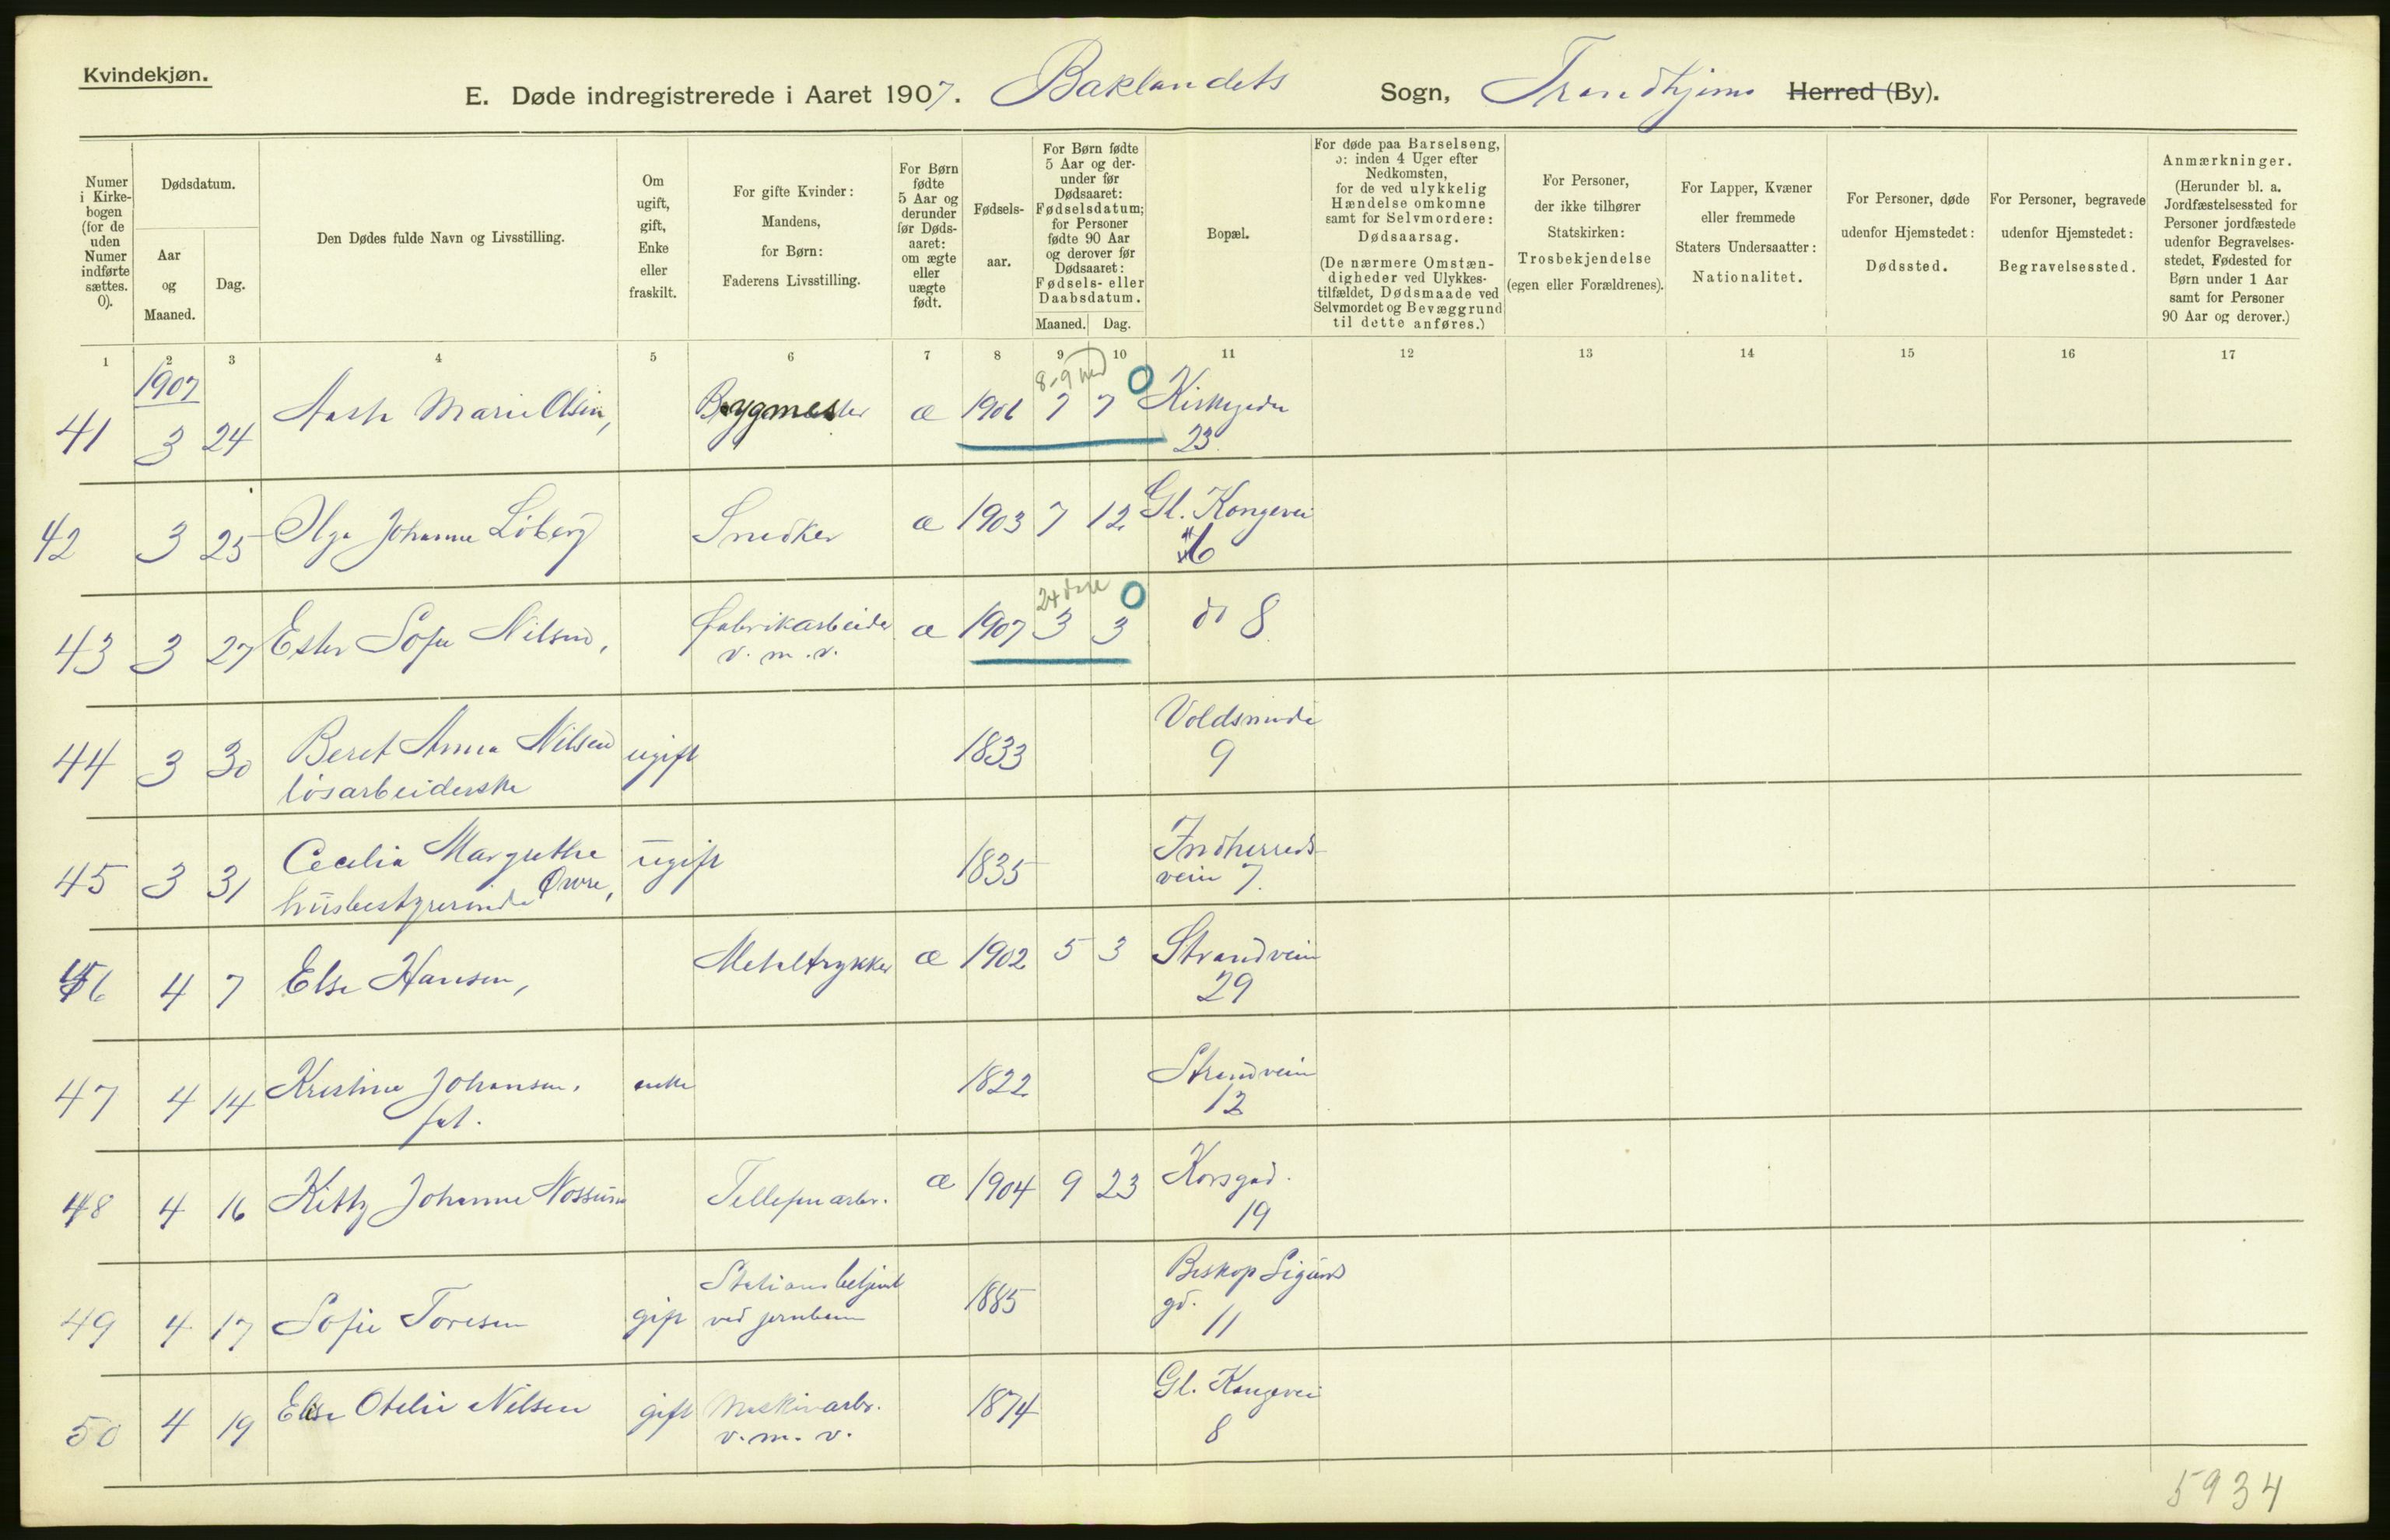 Kvindekjøn.
E. Døde indregistrerede i Aaret 1907. Baklandets Sogn, Trondhjems Herred (By).
Numer i Kirkebogen (for de uden Numer indførte sættes. 0).
Dødsdatum.
Aar og Maaned.
Dag.
Den Dødes fulde Navn og Livsstilling.
Om ugift, gift, Enke eller fraskilt.
For gifte Kvinder: Mandens, for Børn: Faderens Livsstilling.
For Børn fødte 5 Aar og derunder før Dødsaaret: om ægte eller uægte født.
Fødselsaar.
For Børn fødte 5 Aar og derunder før Dødsaaret: Fødselsdatum; for Personer fødte 90 Aar og derover før Dødsaaret: Fødsels- eller Daabsdatum.
Maaned. Dag.
Bopæl.
For døde paa Barselseng, ɔ: inden 4 Uger efter Nedkomsten, for de ved ulykkelig Hændelse omkomne samt for Selvmordere: Dødsaarsag. (De nærmere Omstændigheder ved Ulykkestilfældet, Dødsmaade ved Selvmordet og Bevæggrund til dette anføres.)
For Personer, der ikke tilhører Statskirken: Trosbekjendelse (egen eller Forældrenes).
For Lapper, Kvæner eller fremmede Staters Undersaatter: Nationalitet.
For Personer, døde udenfor Hjemstedet: Dødssted.
For Personer, begravede udenfor Hjemstedet: Begravelsessted.
Anmærkninger. (Herunder bl. a. Jordfæstelsessted for Personer jordfæstede udenfor Begravelsesstedet, Fødested for Børn under 1 Aar samt for Personer 90 Aar og derover.)
1 2 3 4 5 6 7 8 9 10 11 12 13 14 15 16 17
1907
8-9 md 0
41 3 24 Aasta Marie Olsen, Bygmester æ 1906 7 7 Kirkegaden
23
42 3 25 Olga Johanne Löberg Snedker æ 1903 7 12 Gl. Kongevei
16
24 dage 0
43 3 27 Ester Sofie Nilsen, fabrikarbeider æ 1907 3 3 do 8
v. m. v.
44 3 30 Beret Anna Nilsen ugift 1833 Voldsminde
løsarbeiderske 9
45 3 31 Cecelia Margrethe ugift 1835 Indherreds-
husbestyrerinde Øwre, veien 7.
46 4 7 Else Hansen, Metaltrykker æ 1902 5 3 Strandveien
29
47 4 14 Kristine Johansen, enke 1822 Strandveien
fat. 12
48 4 16 Kitty Johanne Nossum Tellefonarbr. æ 1904 9 23 Korsgad.
19
49 4 17 Sofie Toresen gift Stationsbetjent 1885 Biskop Sigurds
ved jernbanen gd.
11
50 4 19 Elise Otelie Nilsen gift Maskinarbr. 1874 Gl. Kongevei
v. m. v. 8
5934